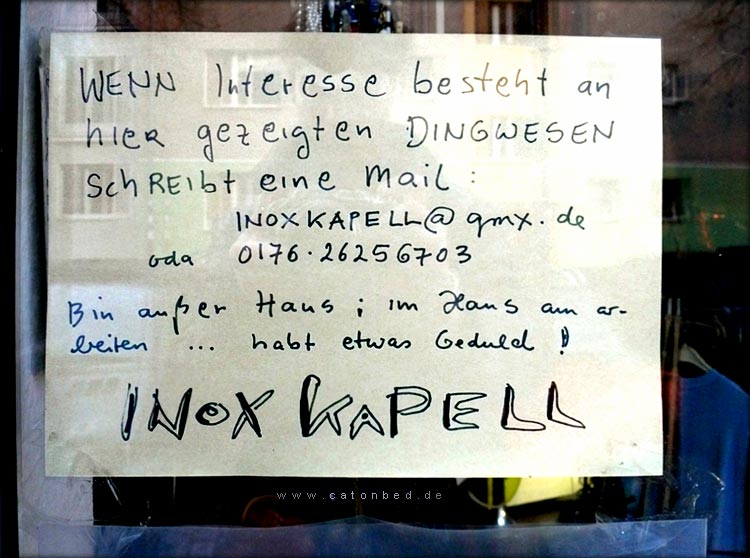 WENN Interesse besteht an
hier gezeigten DINGWESEN
schREIbt eine mail :
INOXKAPELL@gmx.de
oda 0176.26256703
Bin außer Haus ; im Haus am ar-
beiten ... habt etwas Geduld !
INOX KAPELL
www.catonbed.de